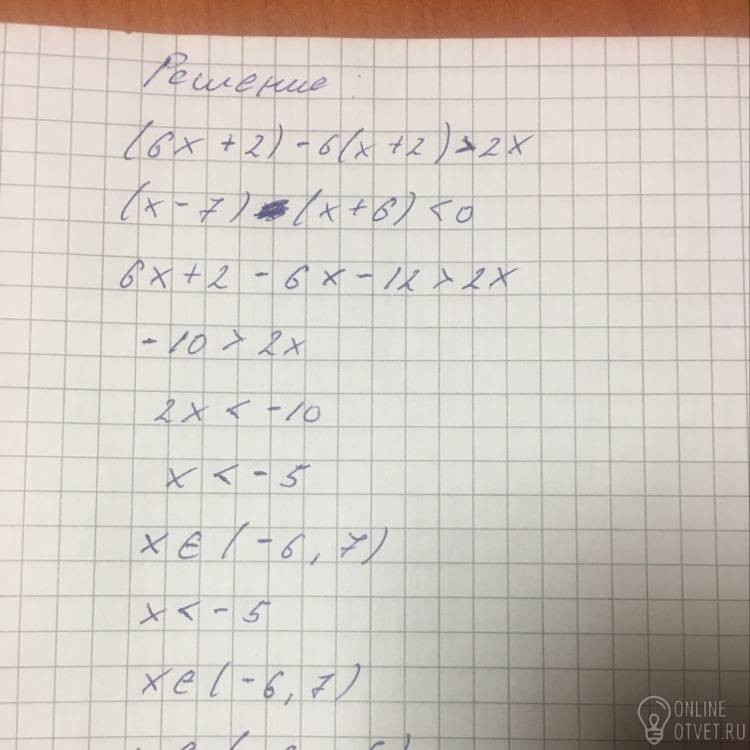 Решение:
(6x+2)-6(x+2)>2x
(x-7) (x+6)<0
6x+2-6x-12>2x
-10>2x
2x<-10
x<-5
x∈(-6,7)
x<-5
x∈(-6,7)
ONLINE
OTVET.RU